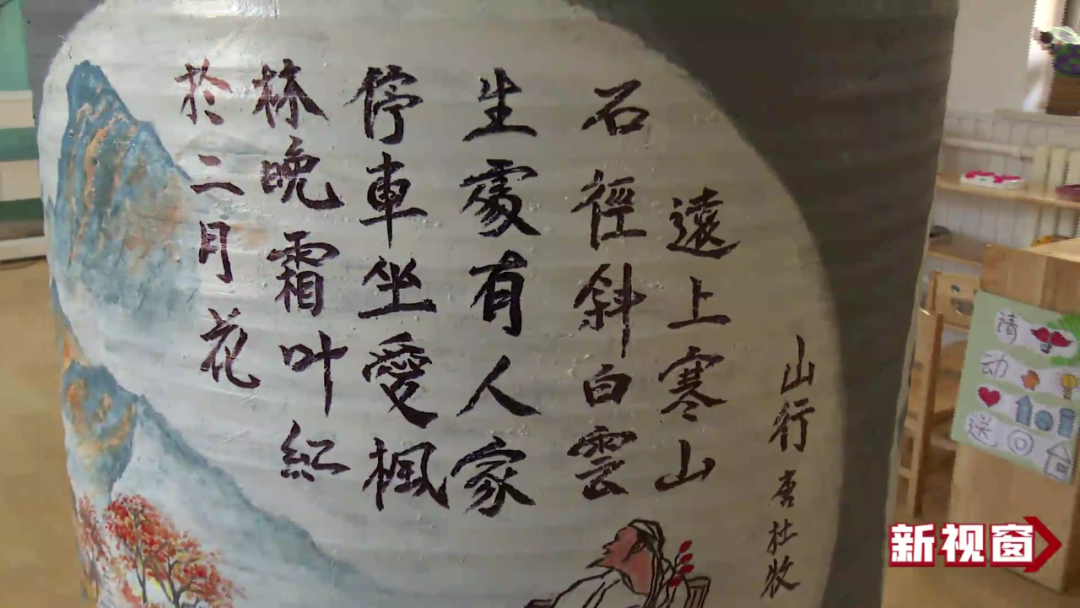 山行 唐杜牧
遠上寒山
石徑斜白雲
生處有人家
停車坐愛楓
林晚霜叶紅
於二月花
请
动
送
新视窗